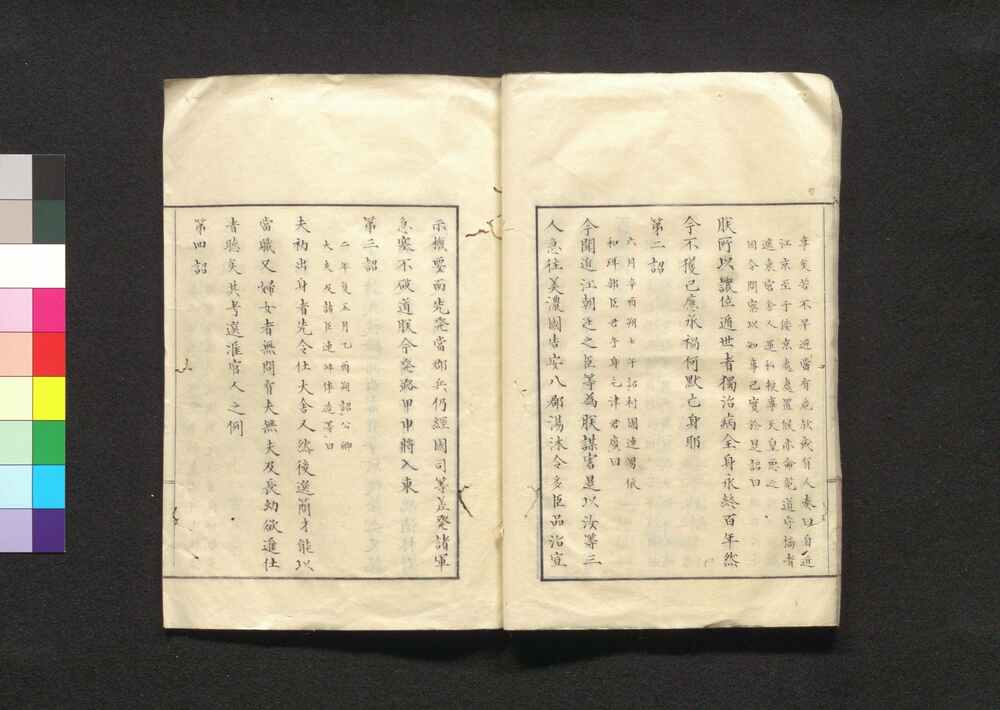 事矣若不早避當有危歟或有人奏曰自近
江京至于倭京處處置候亦命菟道守橋者
遮皇大弟宮舍人運私粮事天皇惡之
因令問察以知事已實於是詔曰
朕所以讓位遁世者獨治病全身永終百年然
今不獲已應承禍何默亡身耶
第二詔
六月辛酉朔壬午詔村國連男依
和珥部臣君手身毛津君廣曰
今聞近江朝廷之臣等為朕謀害是以汝等三
人急往美濃國告安八磨郡湯沐令多臣品治宣
示機要而先發當郡兵仍經國司等差發諸軍
急塞不破道朕今發路甲申將入東
第三詔
二年夏五月乙酉朔詔公卿
大夫及諸臣連幷伴造等曰
夫初出身者先令仕大舍人然後選簡才能以
當職又婦女者無問有夫無夫及長幼欲進仕
者聽矣其考選准官人之例
第四詔